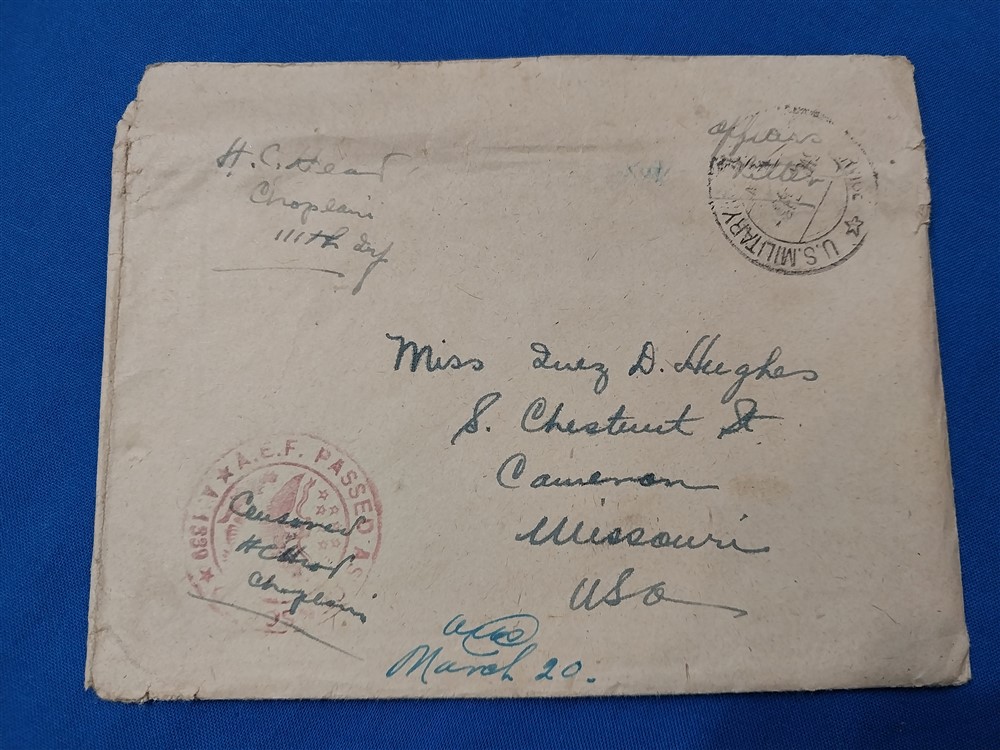 H. C. Head
Chaplain
111th Inf
Officers
Letter
U.S. MILITARY
Miss Inez D. Hughes
S. Chestnut St
Cameron
Missouri
USA
A.E.F. PASSED AS
A. 1339
Censored
HCHead
Chaplain
March 20.